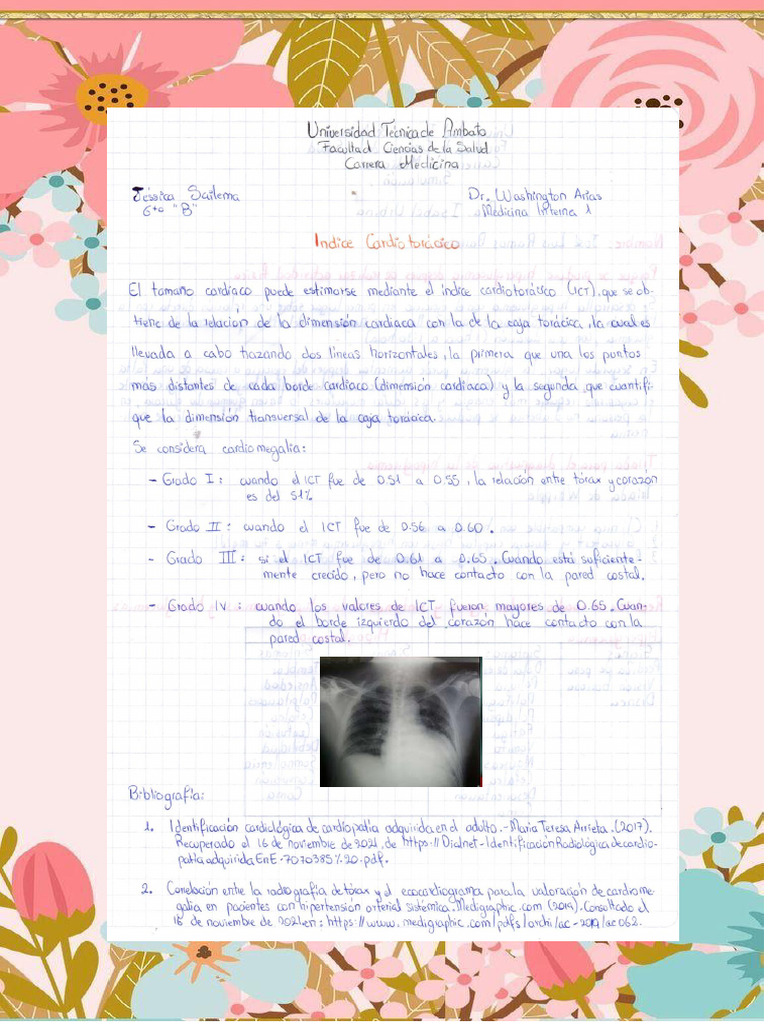 Universidad Técnica de Ambato
Facultad Ciencias de la Salud
Carrera Medicina
Jéssica Sailema
Dr. Washington Arias
6to "B"
Medicina Interna 1
Indice Cardiotorácico
El tamaño cardíaco puede estimarse mediante el índice cardiotorácico (ICT), que se ob-
tiene de la relación de la dimensión cardiaca con la de la caja torácica, la cual es
llevada a cabo trazando dos líneas horizontales, la primera que una los puntos
más distantes de cada borde cardíaco (dimensión cardíaca) y la segunda que cuantifi-
que la dimensión transversal de la caja torácica.
Se considera cardiomegalia:
- Grado I: cuando el ICT fue de 0.51 a 0.55, la relación entre tórax y corazón
es del 51%
- Grado II: cuando el ICT fue de 0.56 a 0.60.
- Grado III: si el ICT fue de 0.61 a 0.65. Cuando está suficiente-
mente crecido, pero no hace contacto con la pared costal.
- Grado IV: cuando los valores de ICT fueron mayores de 0.65. Cuan-
do el borde izquierdo del corazón hace contacto con la
pared costal.
Bibliografía:
1. Identificación cardiológica de cardiopatía adquirida en el adulto.-Maria Teresa Arrieta.(2017).
Recuperado el 16 de noviembre de 2021, de https://Dialnet-Identificación Radiológica de cardio-
patía adquirida EnE-7070385%20.pdf.
2. Correlación entre la radiografía de tórax y el ecocardiograma para la valoración de cardiome-
galia en pacientes con hipertensión arterial sistémica. Medigraphic.com (2019). Consultado el
16 de noviembre de 2021 en: https://www.medigraphic.com/pdfs/archi/ac-2019/ac062.